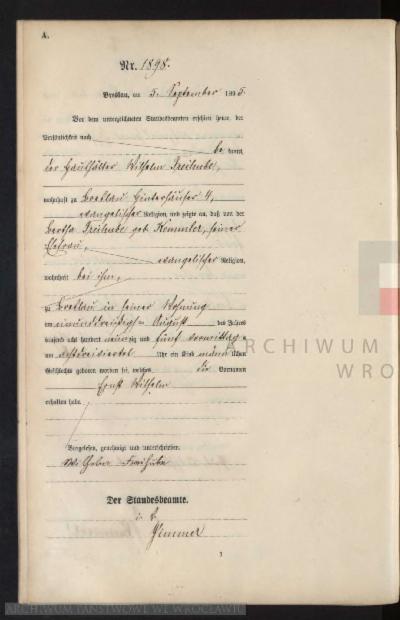 A.
Nr. 1898.
Breslau, am 5. September 1895.
Vor dem unterzeichneten Standesbeamten erschien heute, der
Persönlichkeit nach
bekannt,
der Haushälter Wilhelm
wohnhaft zu Breslau Hinterhäuser 4,
evangelischer Religion, und zeigte an, daß von der
Bertha geb. Kemmler, seiner
Ehefrau,
evangelischer Religion,
wohnhaft bei ihm,
zu Breslau in seiner Wohnung
am einunddreißigsten August des Jahres
tausend acht hundert neunzig und fünf vormittags
um acht Uhr ein Kind männlichen
Geschlechts geboren worden sei, welches die Vornamen
Ernst Wilhelm
erhalten habe.
Vorgelesen, genehmigt und unterschrieben.
Wilhelm
Der Standesbeamte.
i. V.
ARCHIWUM
WRO
ARCHIWUM PAŃSTWOWE WE WROCŁAWIU